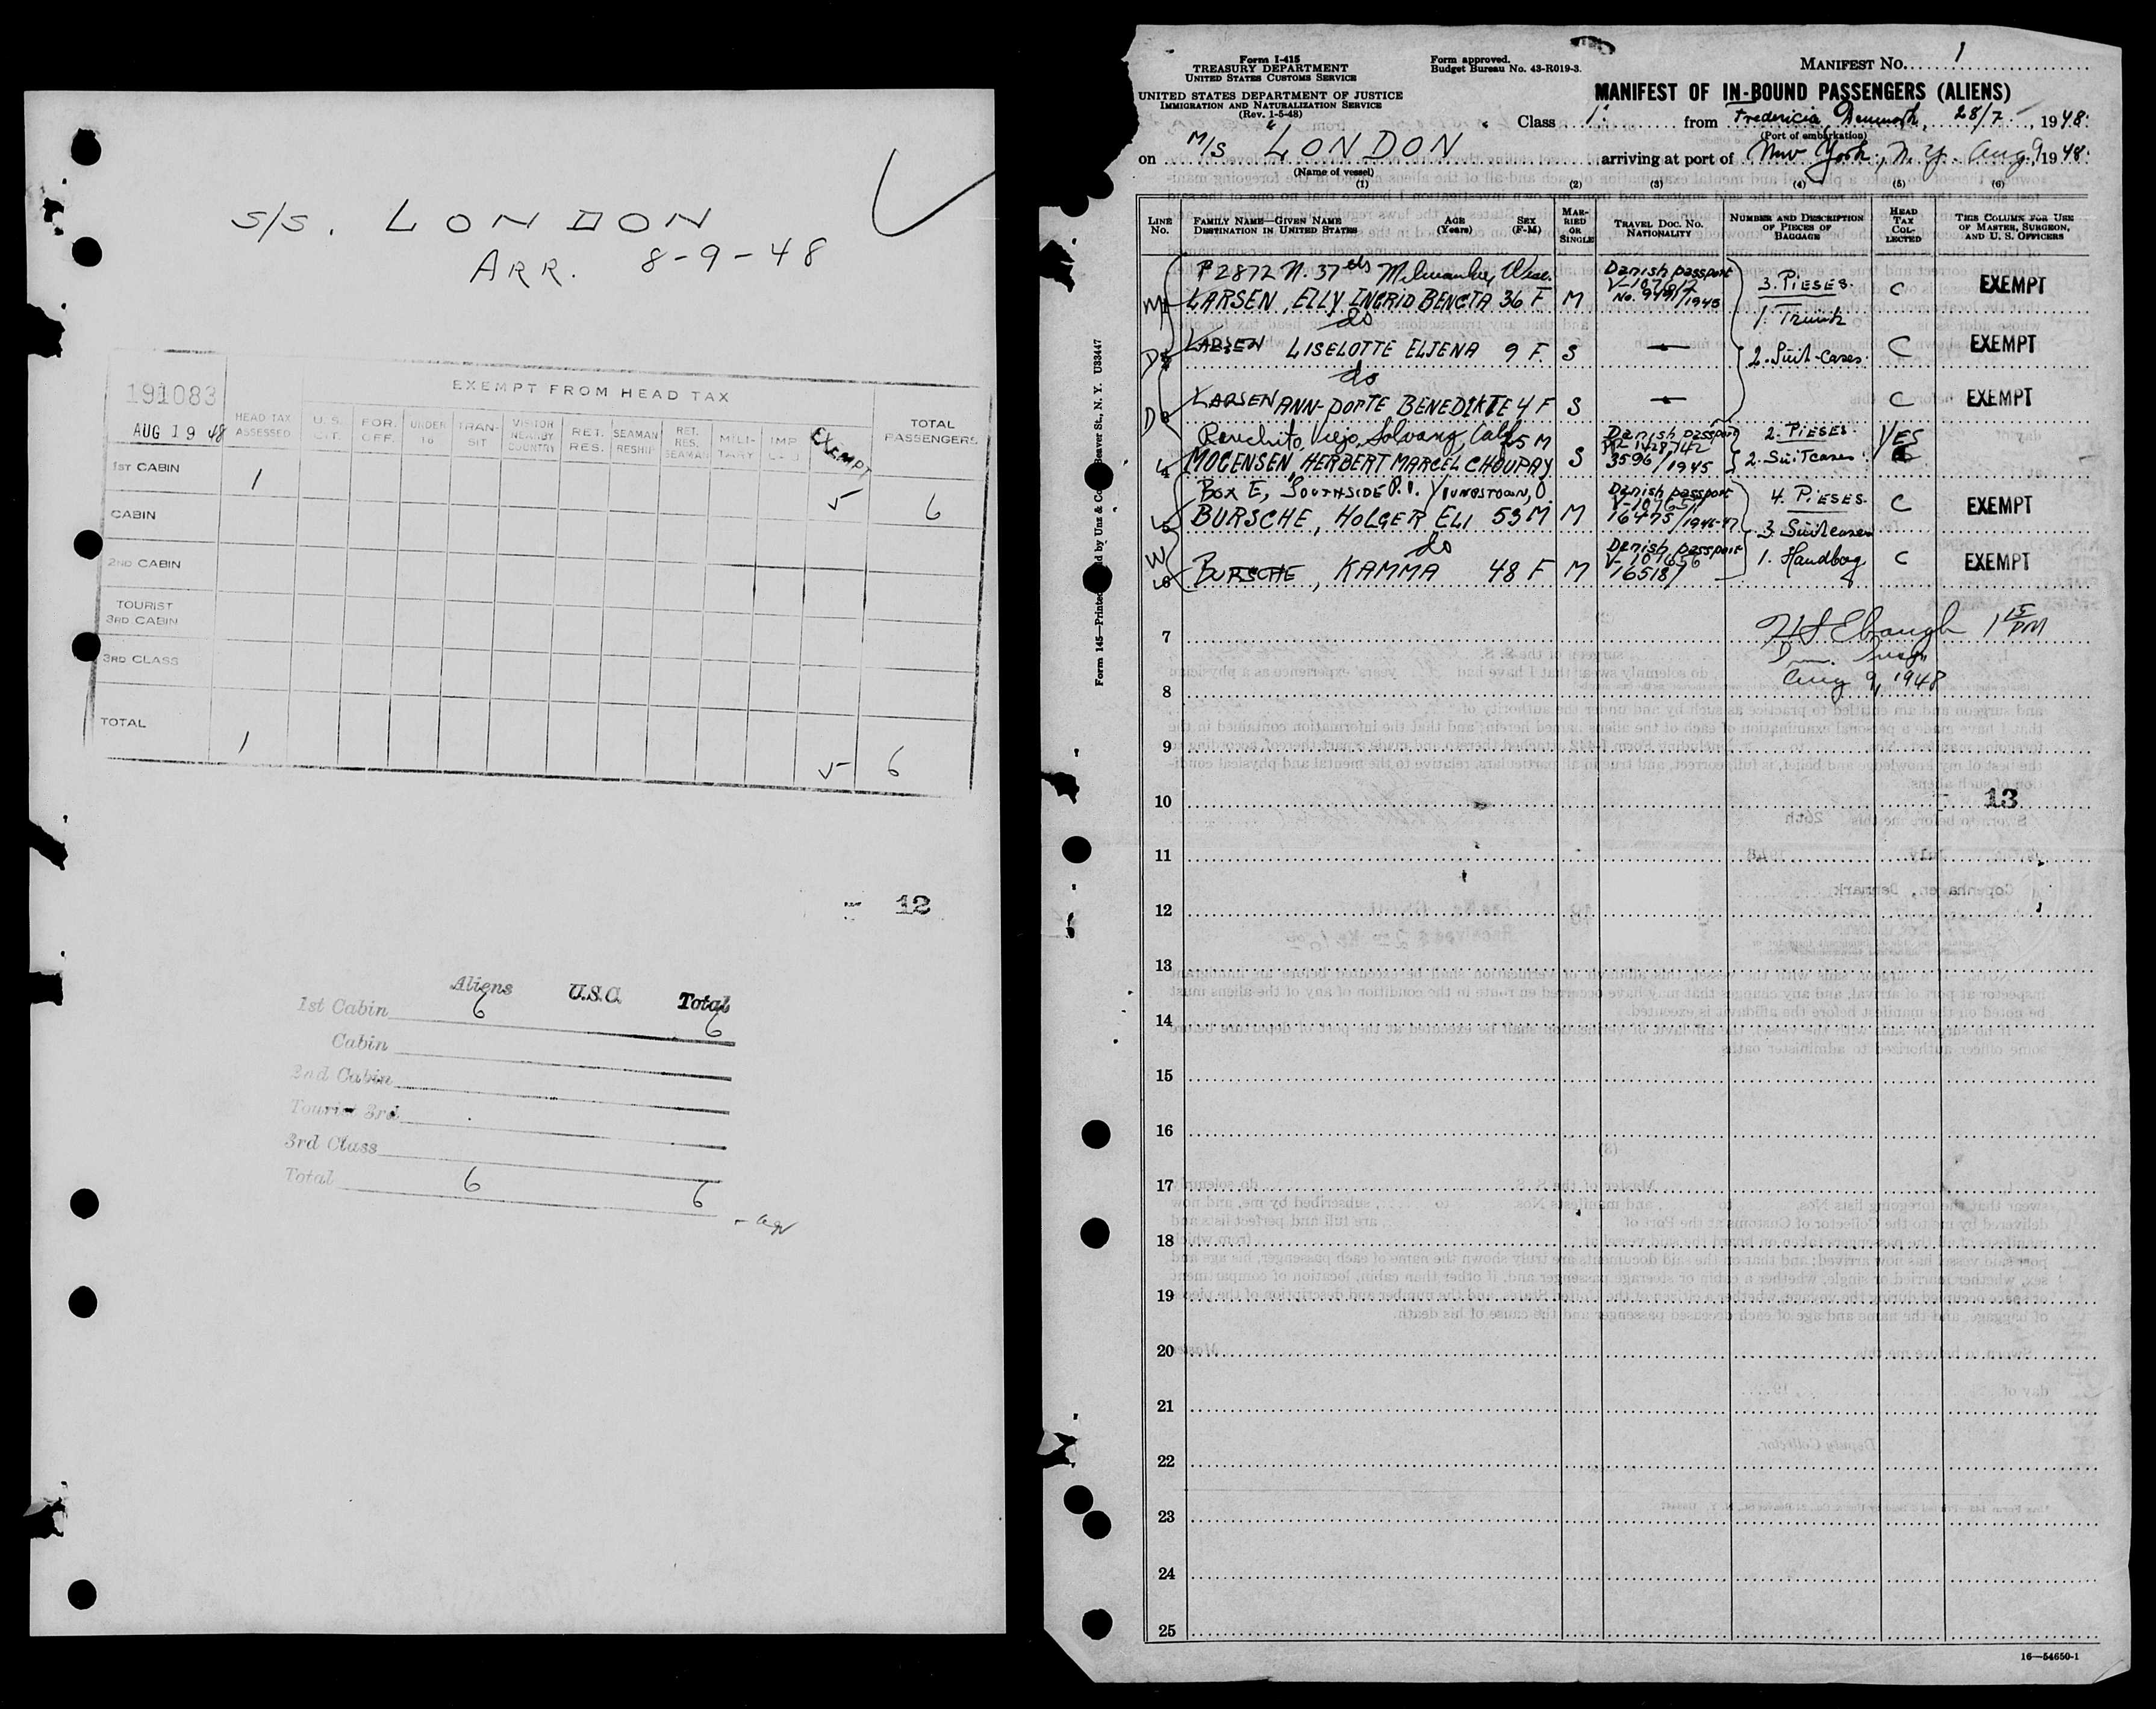 S/S. LONDON
ARR. 8-9-48
191083
AUG 19 48
EXEMPT FROM HEAD TAX
HEAD TAX ASSESSED
U. S. CIT.
FOR. OFF.
UNDER 16
TRAN- SIT
VISITOR NEARBY COUNTRY
RET. RES.
SEAMAN RESHIP
RET. RES. SEAMAN
MILI- TARY
EXEMPT
TOTAL PASSENGERS
1ST CABIN 1 5 6
CABIN
2ND CABIN
TOURIST
3RD CABIN
3RD CLASS
TOTAL 1 5 6
12
Aliens U.S.C. Total
1st Cabin 6 6
Cabin
2nd Cabin
Tourist 3rd
3rd Class
Total 6 6
Form I-415
TREASURY DEPARTMENT
UNITED STATES CUSTOMS SERVICE
Form approved.
Budget Bureau No. 43-R019-3.
MANIFEST NO. 1
UNITED STATES DEPARTMENT OF JUSTICE
IMMIGRATION AND NATURALIZATION SERVICE
(Rev. 1-5-48)
MANIFEST OF IN-BOUND PASSENGERS (ALIENS)
Class 1. from Fredericia Denmark, 28/7 1948.
(Port of embarkation)
on M/S "LONDON" arriving at port of New York, N. Y. Aug 9, 1948.
(Name of vessel)
(1) (2) (3) (4) (5) (6)
LINE No.
FAMILY NAME—GIVEN NAME
DESTINATION IN UNITED STATES
AGE (Years)
SEX (F-M)
MAR- RIED OR SINGLE
TRAVEL DOC. NO. NATIONALITY
NUMBER AND DESCRIPTION OF PIECES OF BAGGAGE
HEAD TAX COL- LECTED
THIS COLUMN FOR USE OF MASTER, SURGEON, AND U. S. OFFICERS
2872 N. 37 Milwaukee, Wisc. Danish passport
LARSEN, ELLY INGRID BENGTA 36 F M 3. PIESES. C EXEMPT
do 1. Trunk
LARSEN LISELOTTE ELJENA 9 F. S — 2. Suit-cases. C EXEMPT
do
LARSEN ANN-DORTE BENEDIKTE 4 F S — C EXEMPT
Viejo, Solvang, Calf 25 M Danish passport 2. PIESES. YES
4 MOGENSEN, HERBERT MARCEL CHOUPAY S 3596/1945 2. Suitcases.
BOX E, SOUTHSIDE P.O. YOUNGSTOWN, O. Danish passport 4. PIESES.
5 BURSCHE, HOLGER ELI 53 M M 16475/1946-47 C EXEMPT
3. Suitcases
do Danish passport
6 BURSCHE, KAMMA 48 F M V-107656 16518/ 1. Handbag C EXEMPT
7 1 15 PM
8 Aug 9, 1948
9
10
13
11
12
13
14
15
16
17
18
19
20
21
22
23
24
25
16—54650-1